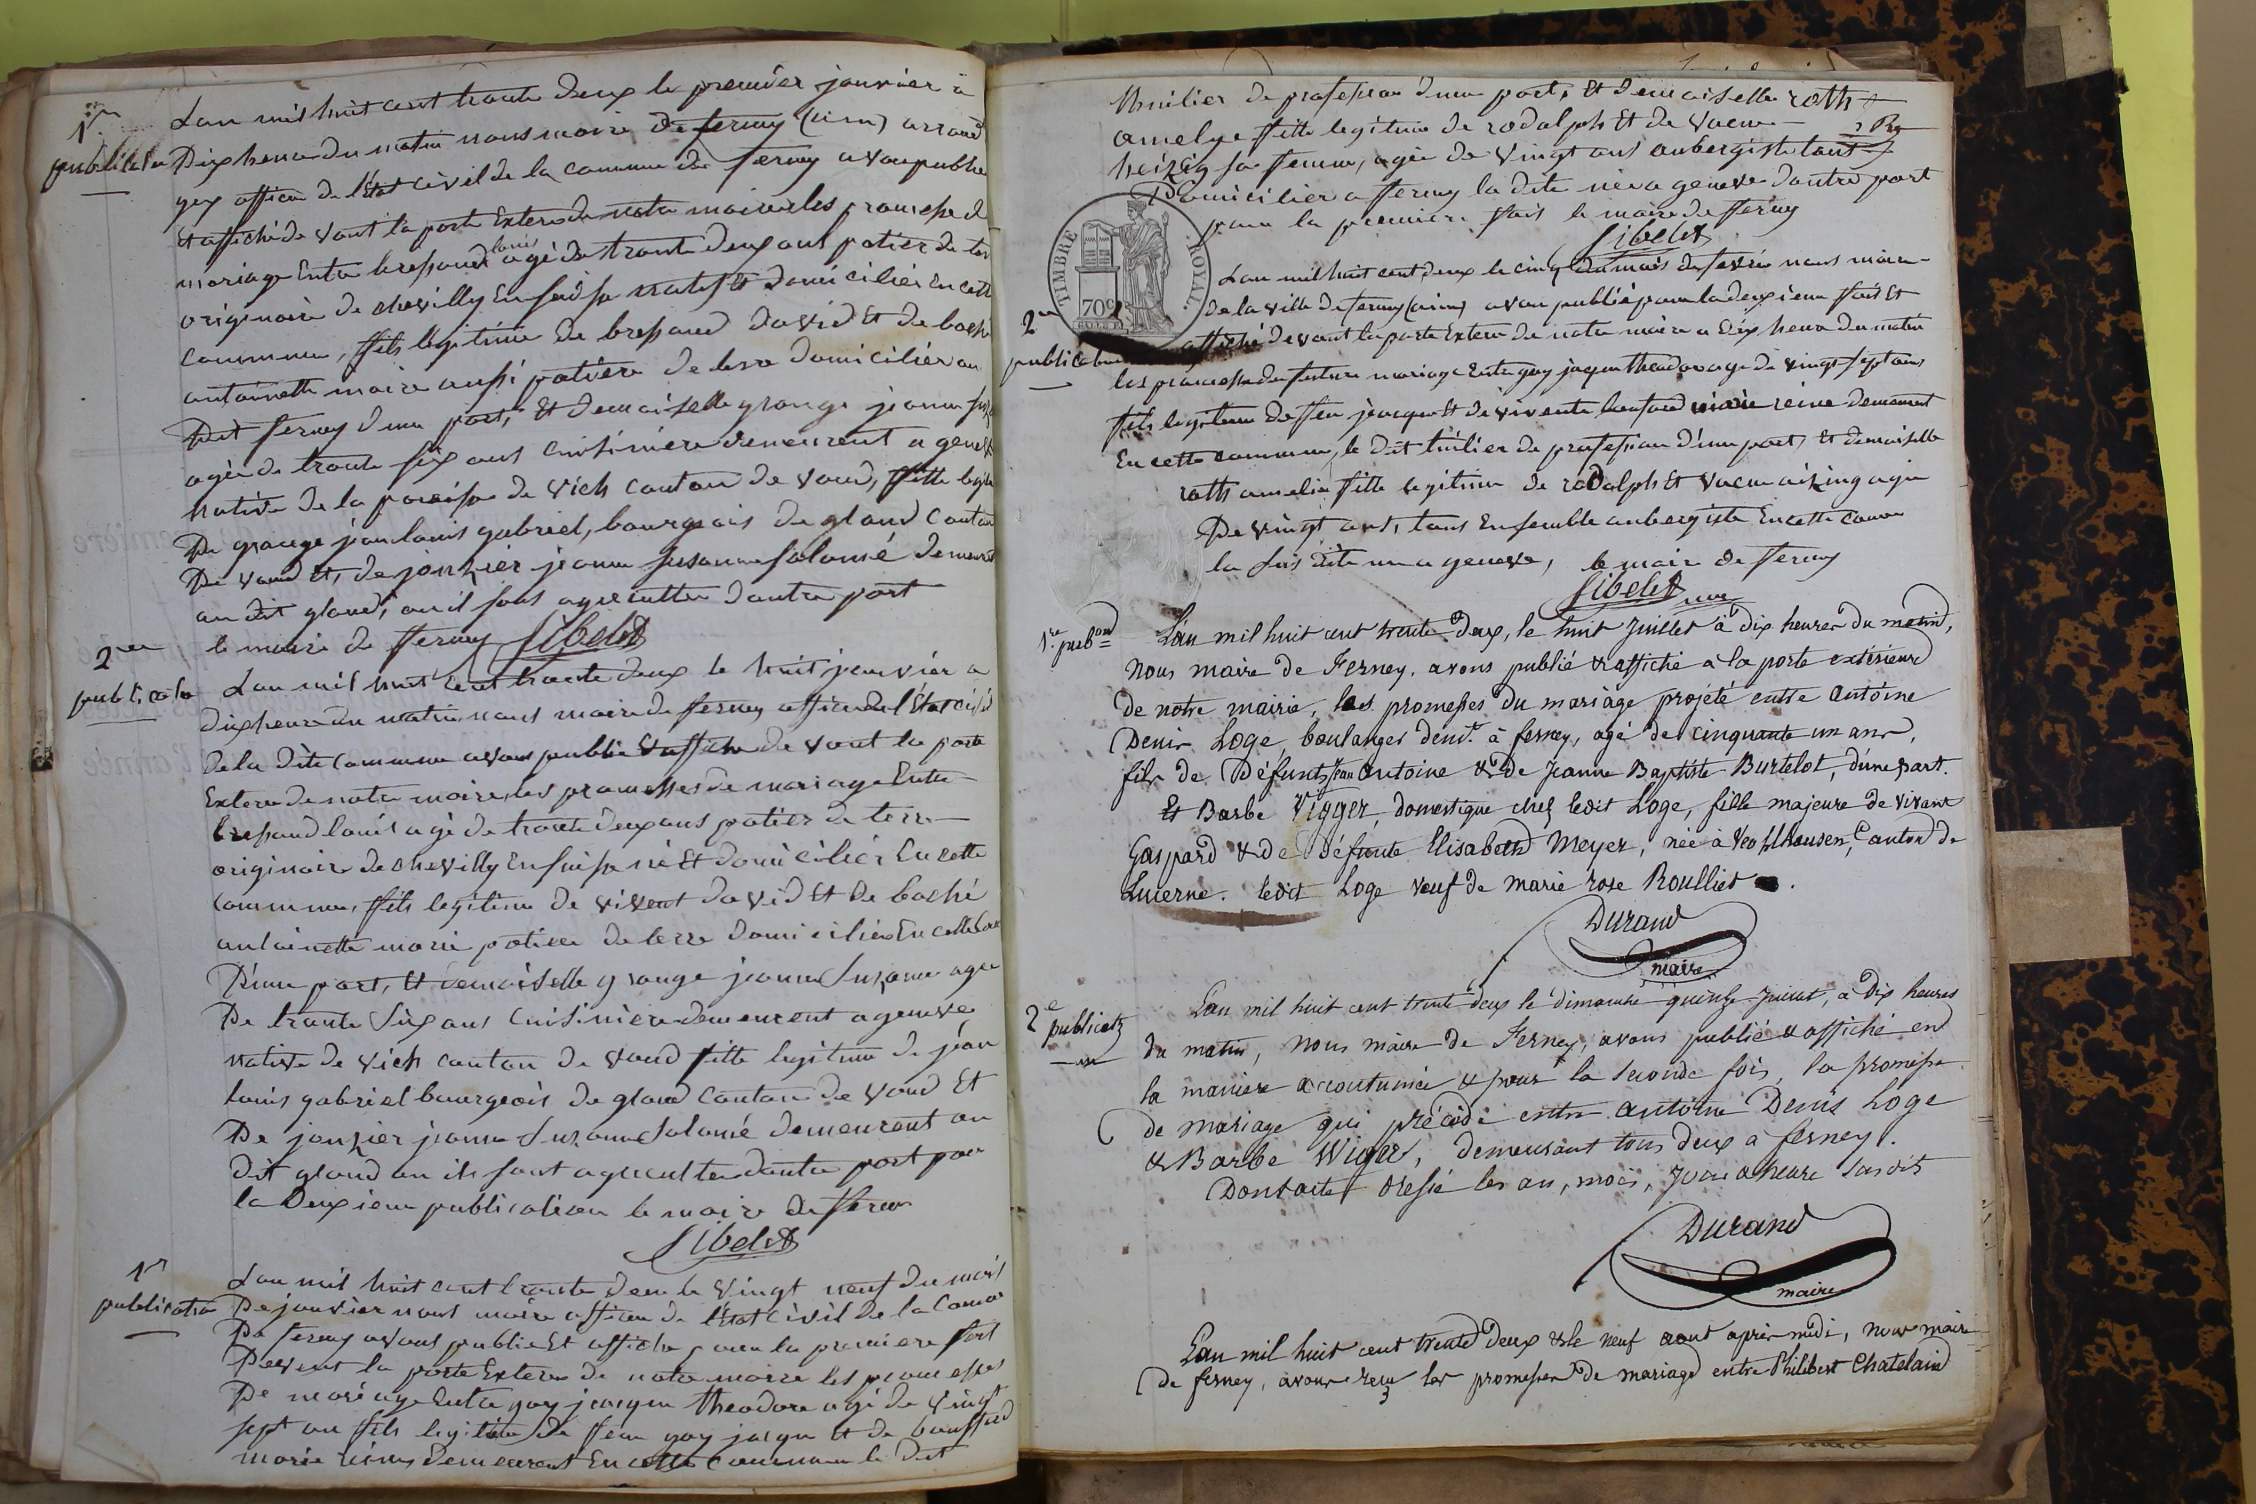 1ere
publication
Lan mil huit cent trante deux le premier janvier a
Dix heure du matin nous maire de ferney (ain) arrond
gex officie de l'Etat civil de la commune de ferney avon publie
Et affiché de vant la porte Extere de notre mairie les promesse de
mariage Entre bressaud louis agé de trante deux ans potier de ter
originaire de chevilly En suisse natif Et domicilier En cette
commune, fils legitime de bressaud david Et de baché
antoinette marie aussi potière de terre domicilier au
Dit ferney d'une part, Et demaiselle grange jeanne
agée de trante six ans cuisinière demeurent a geneve
native de la paroisse de vich canton de vaud, fille legi
De grange jean louis gabriel, bourgeois de gland canton
De vaud Et, de jonzier jeanne susanne salomé demeurent
au dit gland, ou il sont agriculter d'autre part
le maire de ferney Sibelet
2me
publicatio
Lan mil huit cent trante deux le huit janvier a
dix heure du matin nous maire de ferney officie de l'Etat civil
De la dite commune avons publié Et affiche de vant la porte
Extere de notre mairie, les promesses de mariage Entre
bressaud louis agé de trante deux ans potier de terre
originair de chevilly En suisse né Et domicilier En cette
commune, fils legitime de vivent david Et de baché
antoinette marie potiere de terre domicilier En cette Com
D'une part, Et demoiselle grange jeanne Suzanne agee
De trante Six ans Cuisinière demeurent a geneve
native de vich canton de vaud fille legitime de jean
louis gabriel bourgeois de gland canton de vaud Et
De jonzier jeanne Suzanne Salomé demeurent au
dit gland ou ils sont agriculter d'autre part pour
la deuxieme publication le maire de ferney
Sibelet
1re
publication
Lan mil huit cent trante deux le vingt neuf du mois
De janvier nous maire officie de l'Etat civil de la Comune
De ferney avons publié Et affiche pour la premiere fois
Devent la porte Extere de notre mairie les promesses
De mariage Entre gay jacque theodore agé de vingt
sept an fils legitime De feu gay jacque et de bouffard
marie reine Demeurent En cette Commune le Dit
thuilier de profession d'une part, Et demaiselle roth
amelye fille legitime de rodalph Et de vacue
heizig sa femme, agée de vingt ans aubergiste tout
Domicilier a fferney la dite née a geneve d'autre part
pour la premiere fois le maire de fferney
Sibelet
TIMBRE ROYAL
70c
2me
publication
Lan mil huit cent deux le cinq du mois de fevrie nous maire
de la ville de ferney (ain) avon publié pour la deuxieme fois Et
affiché devant la porte Extere de notre maire a dix heure du matin
les promesse de future mariage Entre gay jaque theodore age de vingt sept ans
fils legitime de feu jacque Et de vivente bouffard marie reine demeurent
En cette commune, le dit tuilier de profession d'une part, Et demaiselle
roth amelie fille legitime de rodalph Et vacue agée
De vingt ans, tous Ensemble aubergiste En cette Comune
la sus dite née a geneve, le maire de ferney
Sibelet
1.re pub.on
L'an mil huit cent trente deux, le huit Juillet à dix heures du matin,
nous maire de Ferney, avons publié & affiché à la porte extérieure
de notre mairie, les promesses du mariage projeté entre Antoine
Denis Loge, boulanger dem.t à ferney, agé de cinquante un ans,
fils de Défunts Jean Antoine & de Jeanne Baptiste Burtelot, d'une part.
Et Barbe Vigger domestique chez ledit Loge, fille majeure de vivant
Gaspard & de défunte Elisabeth Meyer, née à Canton de
Lucerne. ledit Loge veuf de marie rose Roulliet.
Durand
maire
2e
publicat.
Lan mil huit cent trente deux le dimanche quinze Juillet, à dix heures
du matin, nous maire de Ferney, avons publié & affiché en
la manière accoutumée & pour la seconde fois, la promesse
de mariage qui précède entre antoine Denis Loge
& Barbe Wiger, demeurant tous deux à ferney.
Dont acte dressé les an, mois, jour & heure susdits
Durand
maire
Lan mil huit cent trente deux & le neuf aout après midi, nous maire
de ferney, avons reçu les promesses de mariage entre Philibert Chatelain